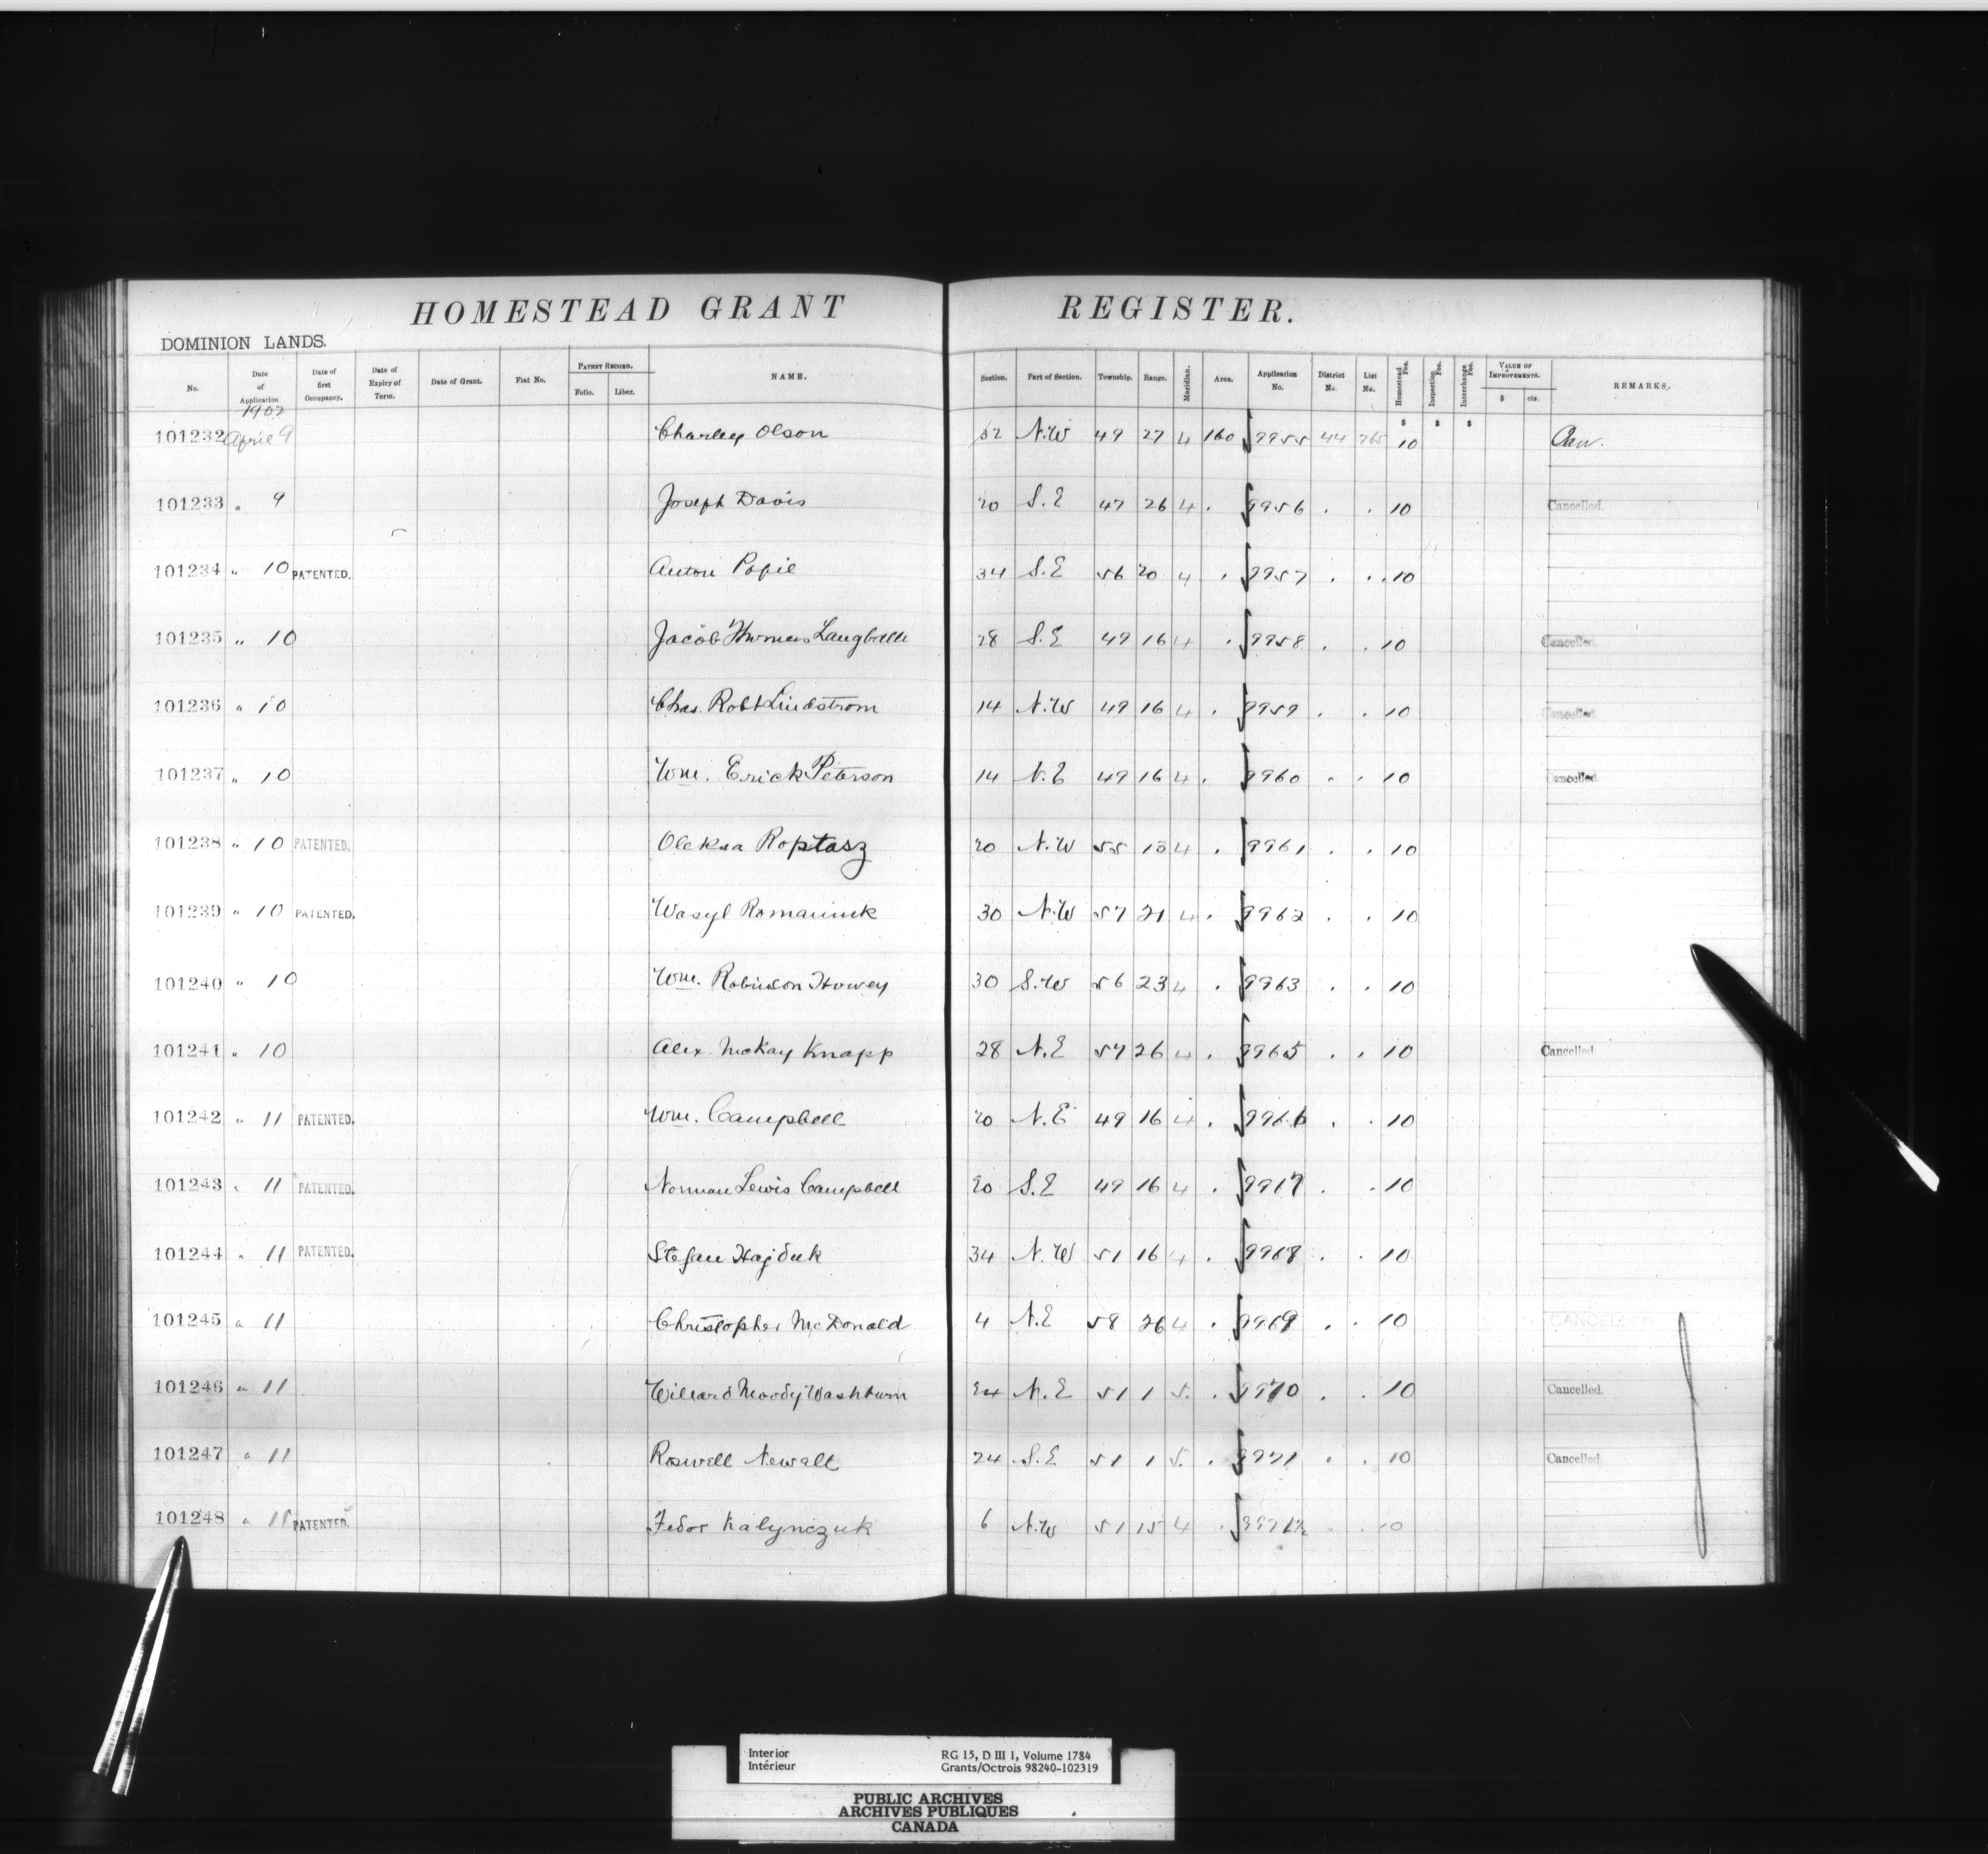 HOMESTEAD GRANT REGISTER.
DOMINION LANDS.
No. Date of Application Date of first Occupancy. Date of Expiry of Term. Date of Grant. Fiat No. PATENT RECORD. Folio. Liber. NAME. Section. Part of Section. Township. Range. Meridian. Area. Application No. District No. List No. Homestead Fee. Inspection Fee. Interchange Fee. VALUE OF IMPROVEMENTS. $ cts. REMARKS.
1902
$ $ $
101232 April 9 Charley Olson 32 N.W 49 27 4 160 9955 44 765 10
101233 " 9 Joseph Davis 20 S.E 47 26 4 . 9956 . . 10 Cancelled.
101234 " 10 PATENTED. 34 S.E 56 20 4 . 9957 . . 10
101235 " 10 Jacob 28 S.E 49 16 4 . 9958 . . 10 Cancelled.
101236 " 10 Chas. Robt Lindstrom 14 N.W 49 16 4 . 9959 . . 10 Cancelled.
101237 " 10 Wm. Erick Peterson 14 N.E 49 16 4 . 9960 . . 10 Cancelled.
101238 " 10 PATENTED. Oleksa Roptasz 20 N.W 55 13 4 . 9961 . . 10
101239 " 10 PATENTED. Wasyl Romaniuk 30 N.W 57 21 4 . 9962 . . 10
101240 " 10 Wm. Robinson Howey 30 S.W 56 23 4 . 9963 . . 10
101241 " 10 Alex McKay Knapp 28 N.E 57 26 4 . 9965 . . 10 Cancelled
101242 " 11 PATENTED. Wm. Campbell 20 N.E 49 16 4 . 9966 . . 10
101243 " 11 PATENTED. Norman Lewis Campbell 20 S.E 49 16 4 . . . 10
101244 " 11 PATENTED. Stefan Hajduk 34 N.W 51 16 4 . 9968 . . 10
101245 " 11 Christopher McDonald 4 N.E 58 26 4 . 9969 . . 10 CANCELLED
101246 " 11 Willard Moody Washburn 24 N.E 51 1 5. . 9970 . . 10 Cancelled.
101247 " 11 Roswell Newall 24 S.E 51 1 5. . 9971 . . 10 Cancelled
101248 " 11 PATENTED. Fedor Kalynczuk 6 N.W 51 15 4 . 9971½ . . 10
Interior RG 15, D III 1, Volume 1784
Intérieur Grants/Octrois 98240-102319
PUBLIC ARCHIVES
ARCHIVES PUBLIQUES
CANADA